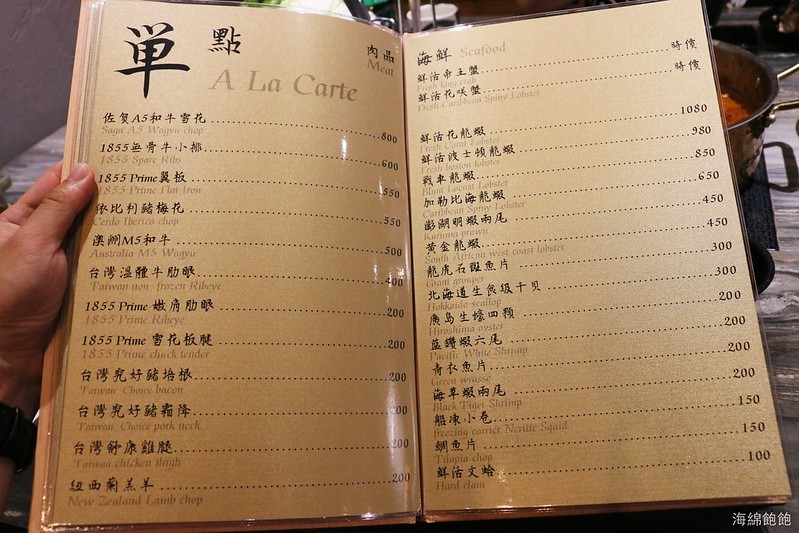 単點
肉品
Meat
A La Carte
佐賀A5和牛雪花 800
Saga A5 Wagyu chop
1855無骨牛小排 600
1855 Spare Ribs
1855 Prime翼板 550
1855 Prime Flat Iron
依比利豬梅花 550
Cerdo Iberico chop
澳洲M5和牛 500
Australia M5 Wagyu
台灣溫體牛肋眼 400
Taiwan non-frozen Ribeye
1855 Prime 嫩肩肋眼 200
1855 Prime Ribeye
1855 Prime 雪花板腱 200
1855 Prime chuck tender
台灣究好豬培根 200
Taiwan Choice bacon
台灣究好豬霜降 200
Taiwan Choice pork neck
台灣舒康雞腿 200
Taiwan chicken thigh
紐西蘭羔羊 200
New Zealand Lamb chop
海鮮 Seafood
鮮活帝王蟹 時價
Fresh king crab
鮮活花咲蟹 時價
Fresh Caribbean Spiny Lobster
鮮活花龍蝦 1080
Fresh Coral Lobster
鮮活波士頓龍蝦 980
Fresh boston lobster
戰車龍蝦 850
Blunt Locust Lobster
加勒比海龍蝦 650
Caribbean Spiny Lobster
澎湖明蝦兩尾 450
Kuruma prawn
黃金龍蝦 450
South African west coast lobster
龍虎石斑魚片 300
Giant grouper
北海道生食級干貝 300
Hokkaido scallop
廣島生蠔四顆 200
Hiroshima oyster
藍鑽蝦六尾 200
Pacific White Shrimp
青衣魚片 200
Green wrasse
海草蝦兩尾 200
Black Tiger Shrimp
船凍小卷 150
freezing carrier Neritic Squid
鯛魚片 150
Tilapia chop
鮮活文蛤 100
Hard clam
海綿飽飽